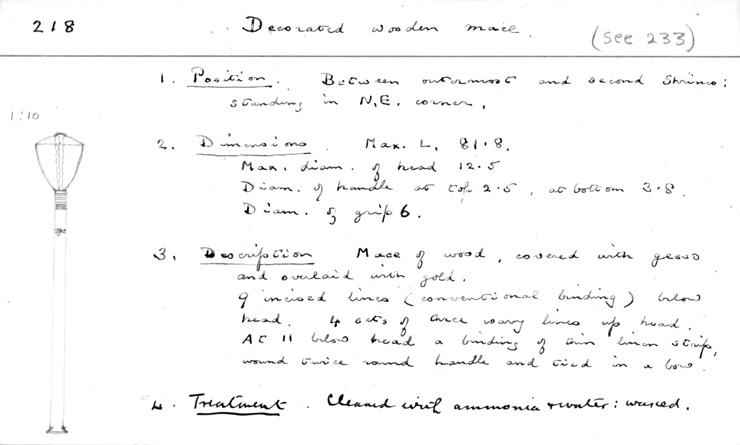 218 Decorated wooden mace. (See 233)
1. Position. Between outermost and second Shrines:
standing in N.E. corner.
1:10
2. Dimensions. Max. L. 81.8.
Max. diam. of head 12.5
Diam. of handle at top 2.5, at bottom 3.8.
Diam. of grip 6.
3. Description Mace of wood, covered with gesso
and overlaid with gold.
9 incised lines (conventional binding) below
head. 4 sets of three wavy lines up head.
At 11 below head a binding of thin linen strip,
wound twice round handle and tied in a bow.
4. Treatment. Cleaned with ammonia & water: waxed.